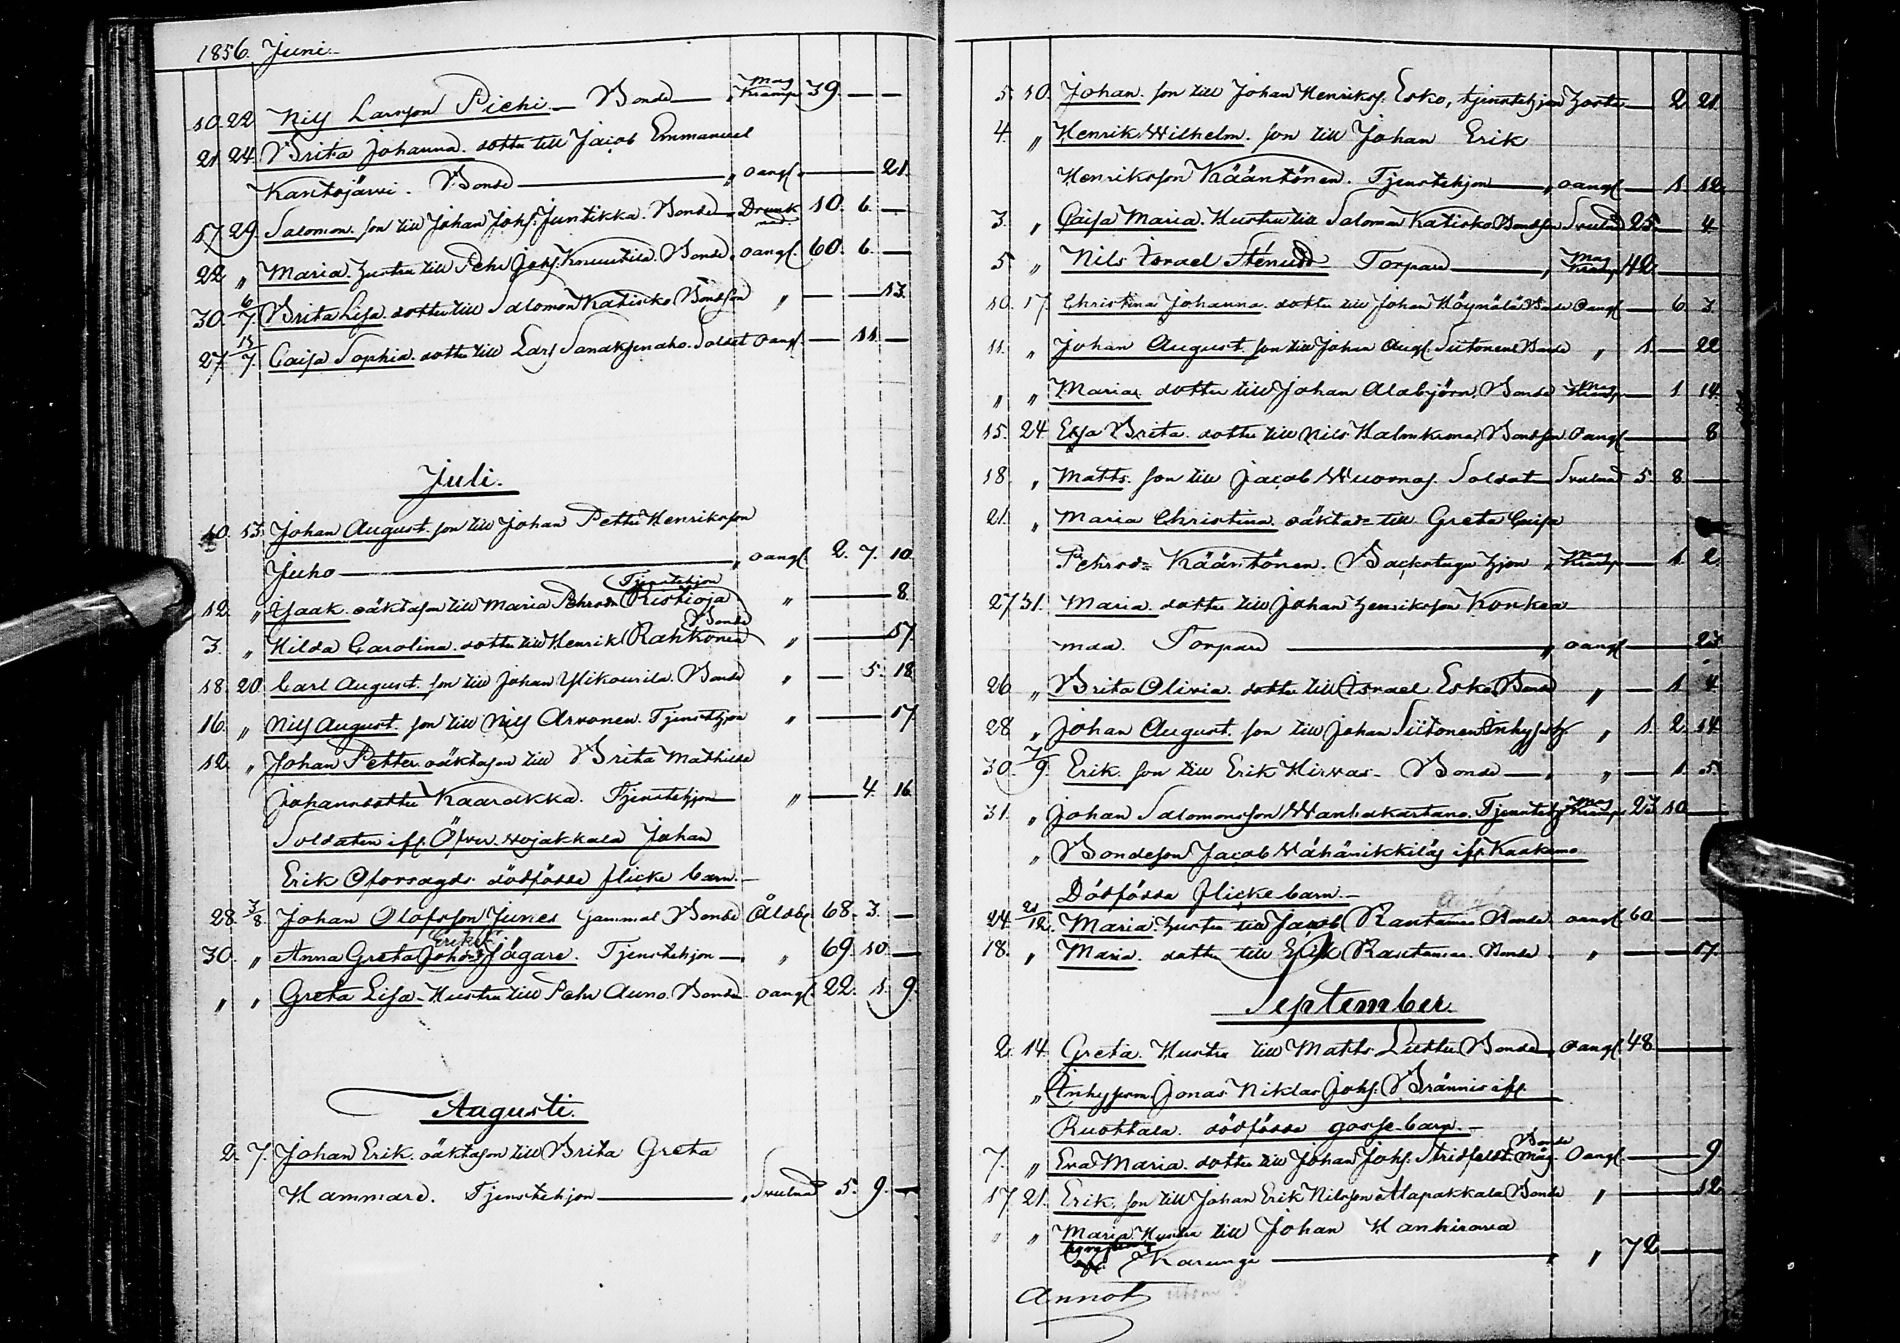 1856. Juni.
10. 22. Nils Larsson Pichi. Bonde Mag Kramp 39. — —
21. 24. Brita Johanna. dotter till Jacob Emmanuel
Kantojärvi. Bonde „ oangf. — — 21.
17. 29. Salomon. son till Johan Johs. Juntikka. Bonde Drunknad. 10. 6. —
22. „ Maria. hustru till Pehr Johs. Knuutila. Bonde. oangf. 60. 6. —
30. 6/7. Brita Lisa. dotter till Salomon Katisko Bondson „ — — 13.
27. 13/7. Caisa Sophia. dotter till Lars Sanaksenaho. Soldat oangf. — 11. —
Juli.
10. 13. Johan August. son till Johan Petter Henriksson
Juho „ oangf. 2. 7. 10.
Tjenstehjon
12. „ Isaak. oäkta son till Maria Pehrsdr Ristioja „ — — 8.
Bonde
3. „ Hilda Carolina. dotter till Henrik Rahkonen „ — — 17.
18. 20. Carl August. son till Johan Ylikourila. Bonde „ — 5. 18.
16. „ Nils August. son till Nils Arvonen. Tjenstehjon „ — — 17.
12. „ Johan Petter. oäkta son till Brita Mathilda
Johansdotter Kaarakka. Tjenstehjon „ — 4. 16.
Soldaten ifr. Öfver Wojakkala Johan
Erik Oforsagds dödfödda flicke barn.—
28. 3/8. Johan Olofsson Junes Gammal Bonde Åldb. 68. 3. —
Eriksd.
30. „ Anna Greta Johansd. Jägare. Tjenstehjon „ 69. 10. —
„ „ Greta Lisa. Hustru till Pehr Auno. Bonde oangf. 22. 1. 9.
Augusti.
2. 7. Johan Erik. oäkta son till Brita Greta
Hammare. Tjenstehjon Svulnad 5. 9. —
5. 10. Johan. son till Johan Henrikss. Esko, tjenstehjon Hosta — 2. 21.
4. „ Henrik Wilhelm. son till Johan Erik
Henriksson Kääntönen. Tjenstehjon „ oangf — 1. 12.
3. „ Caisa Maria. Hustru till Salomon Katisko Bondson Svulnad 25. — 4.
5. „ Nils Israel Stenudd Torpare „ Mag Kramp 42. — —
10. 17. Christina Johanna. dotter till Johan Höynälä Bonde Oangf — 6. 3.
11. „ Johan August. son till Johan Aug. Siitonen Bonde „ 1. — 22.
„ „ Maria. dotter till Johan Alabjörn. Bonde Mag Kramp — 1. 14.
15. 24. Elsa Brita. dotter till Nils Bondson Oangf — — 8.
18. „ Matts. son till Jacob Wuornos. Soldat Svulnad 5. 8. —
21. „ Maria Christina. oäkta dr till Greta Caisa
Pehrsdr Kääntönen. Backstugu hjon „ Mag Kramp — 1. 2.
27. 31. Maria. dotter till Johan Henriksson Korkea
maa. Torpare „ oangf — — 23.
26. „ Brita Olivia. dotter till Israel Esko Bonde „ — 1. 4.
28. „ Johan August. son till Johan Siitonen Inhyses hj. „ 1. 2. 14.
30. 7/9. Erik. son till Erik Hirvas. Bonde „ „ — 1. 5.
31. „ Johan Salomonsson Wanhakartano. Tjenstehj. Mag Kramp 23. 10. —
„ Bondeson Jacob Wähänikkiläs ifr. Kaakamo
Dödfödda flicke barn.—
24. 21/12. Maria. hustru till Jacob Rantamaa. Bonde oangf. 60. — —
18. „ Maria. dotter till Erik Rantamaa. Bonde. „ — — 17.
September.
2. 14. Greta. Hustru till Matts Luttu Bonde „ Oangf. 48. — —
„ Inhysesm. Jonas Niklas Johs. Brännis ifr.
Ruottala. dödfödda gosse barn.—
Bonde
7. „ Eva Maria. dotter till Johan Johs. Stridfeldt. måg Oangf. — — 9.
17. 21. Erik. son till Johan Erik Nilsson Alapakkala Bonde „ — — 12.
„ „ Maria. Hustru till Johan Hanhiroova
ifr. Karungi „ „ 72. — —
Annot